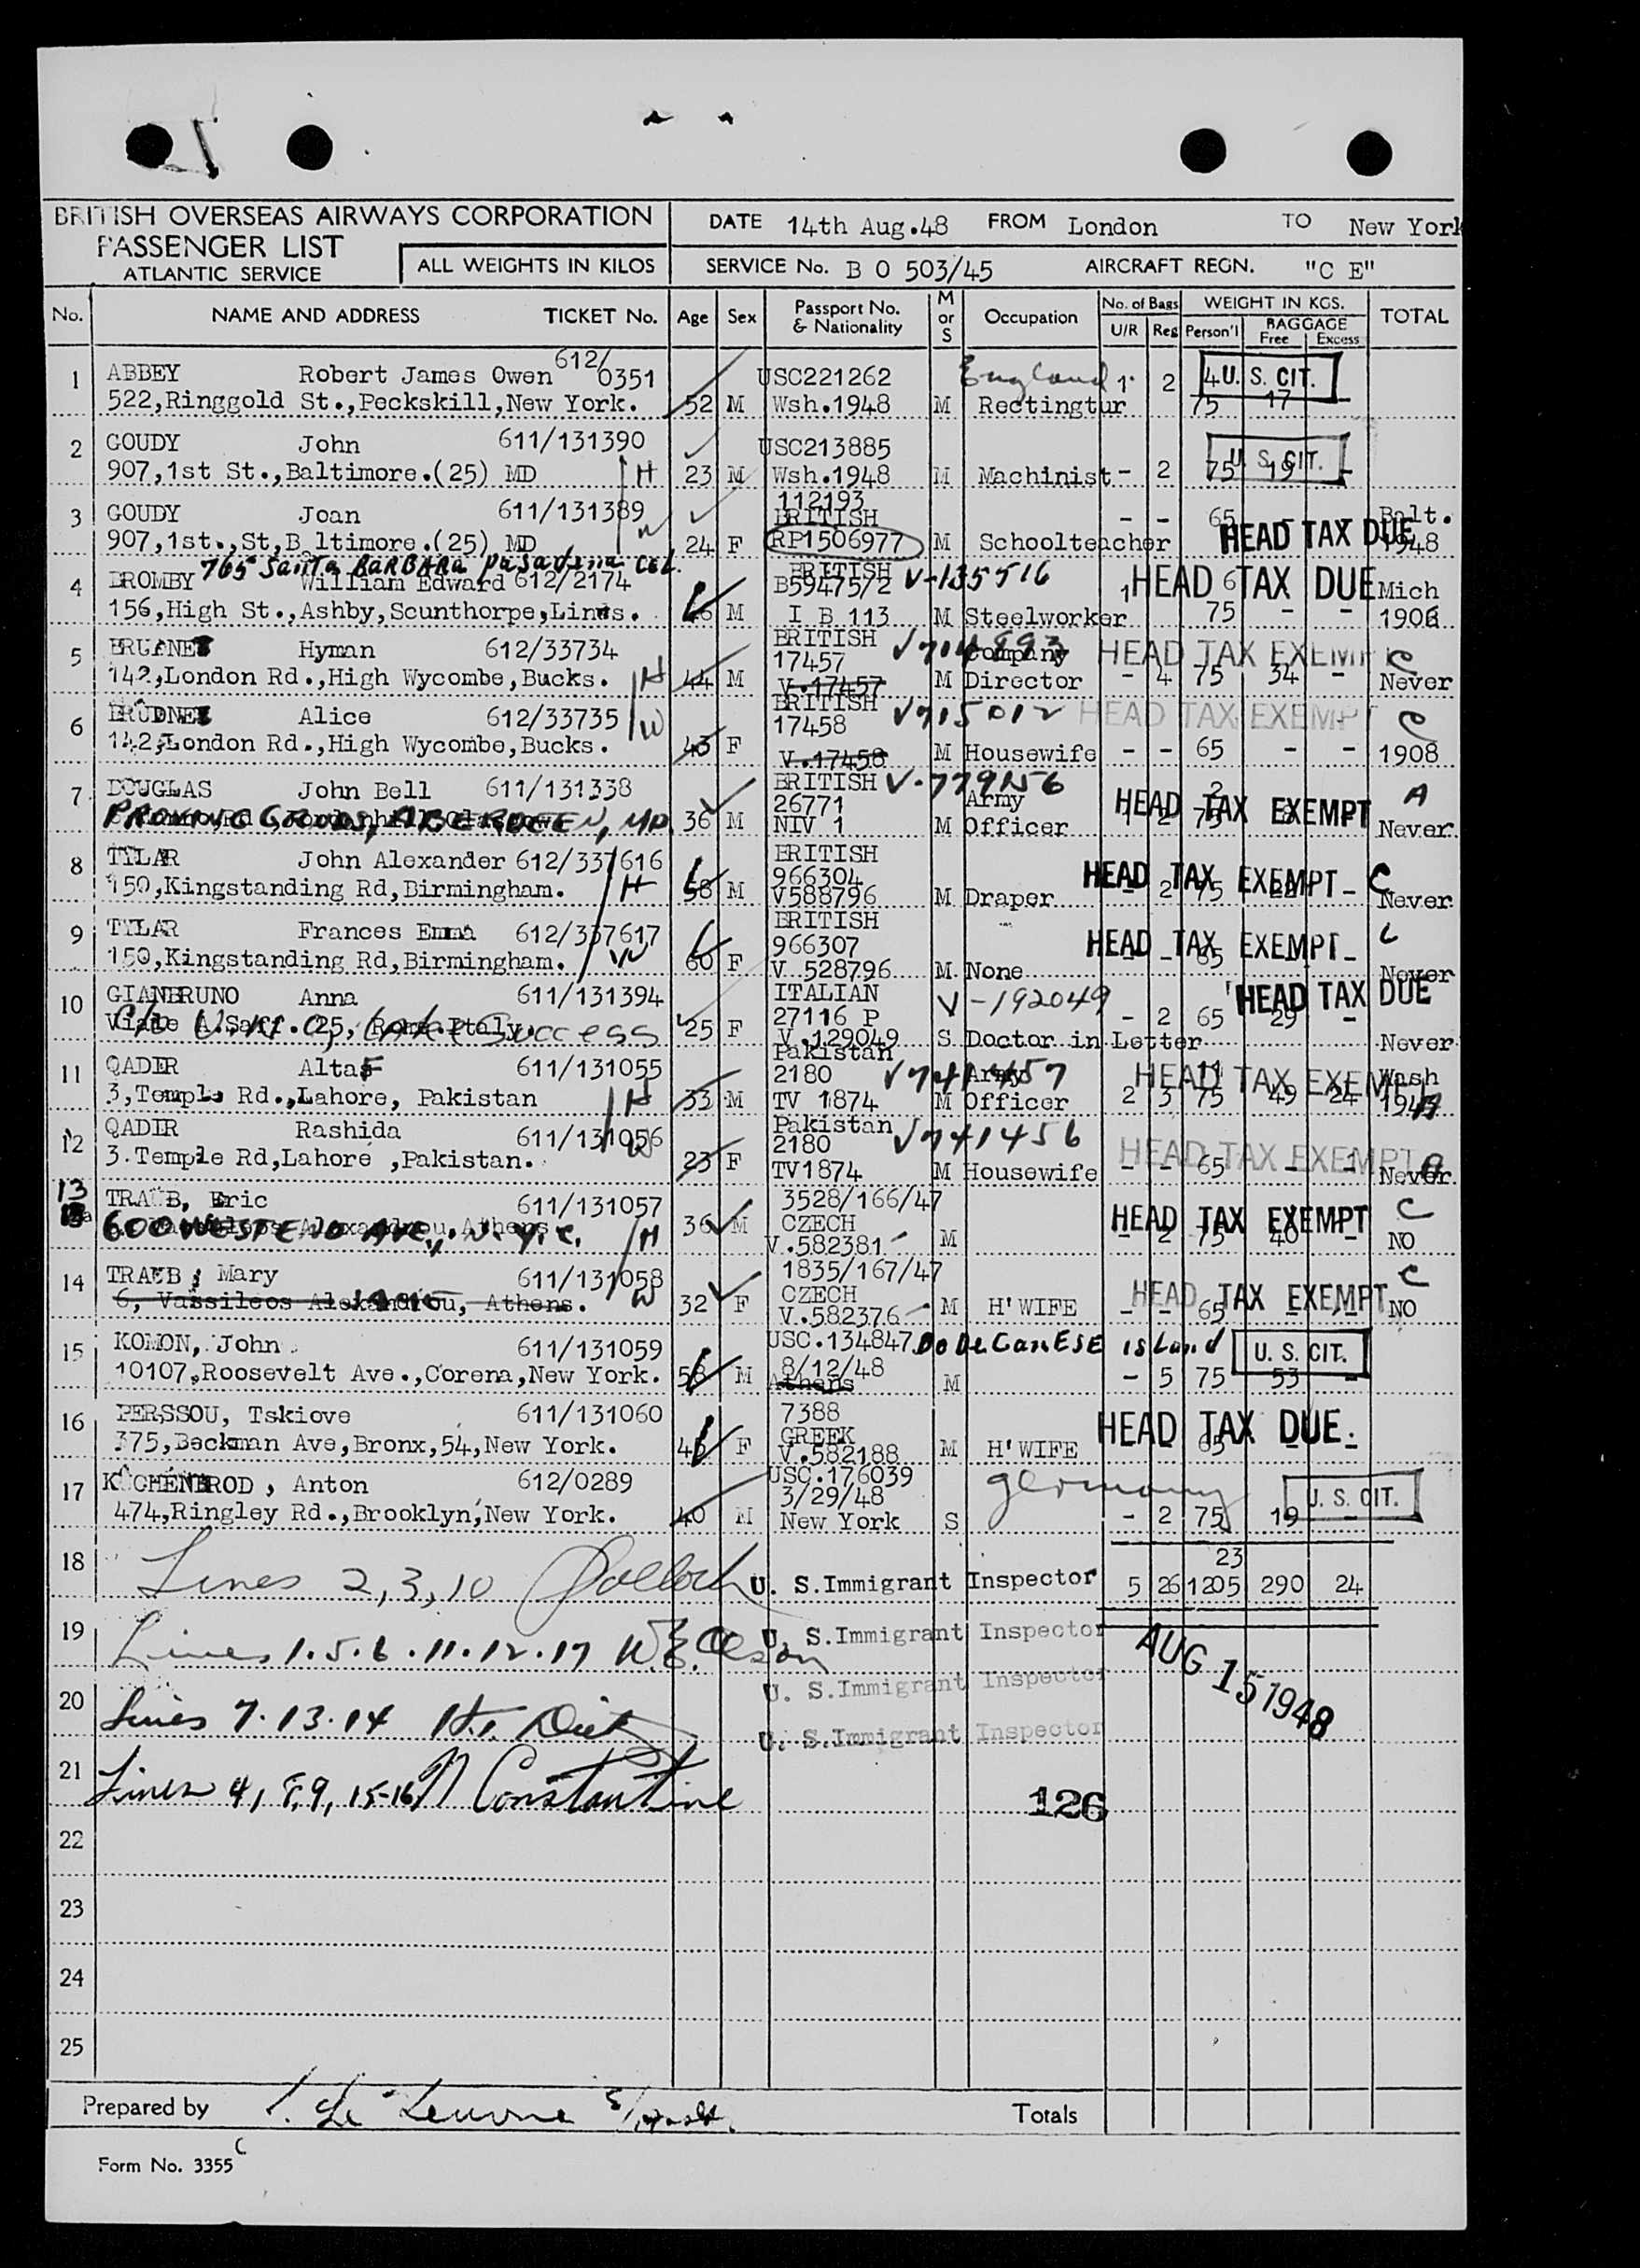 BRITISH OVERSEAS AIRWAYS CORPORATION
PASSENGER LIST
ATLANTIC SERVICE
ALL WEIGHTS IN KILOS
DATE 14th Aug.48 FROM London TO New York
SERVICE No. B O 503/45 AIRCRAFT REGN. "C E"
No. NAME AND ADDRESS TICKET No. Age Sex Passport No. & Nationality M or S Occupation No. of Bags U/R Reg WEIGHT IN KGS. Person'l BAGGAGE Free Excess TOTAL
1 ABBEY Robert James Owen 612/0351 USC221262 England 1 2 4 U. S. CIT.
522,Ringgold St.,Peckskill,New York. 52 M Wsh.1948 M Rectingtur 75 17 -
2 GOUDY John 611/131390 USC213885 U. S. CIT.
907,1st St.,Baltimore.(25) MD H 23 M Wsh.1948 M Machinist - 2 75 19 -
3 GOUDY Joan 611/131389 112193 BRITISH - - 65 Balt.
907,1st.,St,B ltimore.(25) MD W 24 F RP1506977 M Schoolteacher HEAD TAX DUE 1948
765 Santa BARBARA Pasadena Cal.
4 BROMBY William Edward 612/2174 BRITISH B59475/2 V-135516 1 6 HEAD TAX DUE Mich
156,High St.,Ashby,Scunthorpe,Lincs. M I B 113 M Steelworker 75 - - 1906
5 Hyman 612/33734 BRITISH 17457 Company HEAD TAX EXEMPT C
142,London Rd.,High Wycombe,Bucks. H 44 M V.17457 M Director - 4 75 34 - Never
6 Alice 612/33735 BRITISH 17458 V715012 HEAD TAX EXEMPT C
142,London Rd.,High Wycombe,Bucks. W 43 F V.17458 M Housewife - - 65 - - 1908
7 DOUGLAS John Bell 611/131338 BRITISH 26771 Army 2 HEAD TAX EXEMPT A
PROVING GROUNDS, ABERDEEN, MD 36 M NIV 1 M Officer 75 Never
8 TYLAR John Alexander 612/337616 BRITISH 966304 HEAD TAX EXEMPT C
150,Kingstanding Rd,Birmingham. H 58 M V588796 M Draper - 2 75 - Never
9 TYLAR Frances Emma 612/337617 BRITISH 966307 HEAD TAX EXEMPT C
150,Kingstanding Rd,Birmingham. W 60 F V 528796 M None - 65 - Never
10 GIANBRUNO Anna 611/131394 ITALIAN 27116 P V-192049 - 2 65 29 - HEAD TAX DUE
c/o U.N.O, Lake Success 25 F V.129049 S Doctor in Letter Never
11 QADIR Altaf 611/131055 Pakistan 2180 Army 11 HEAD TAX EXEMPT Wash
3,Temple Rd.,Lahore, Pakistan H 33 M TV 1874 M Officer 2 3 75 49 24
12 QADIR Rashida 611/131056 Pakistan 2180 V741456 HEAD TAX EXEMPT A
3.Temple Rd,Lahore ,Pakistan. W 23 F TV1874 M Housewife - - 65 - - Never
13 TRAUB, Eric 611/131057 3528/166/47 CZECH HEAD TAX EXEMPT C
600 WEST END AVE., N.Y.C. H 36 M V.582381 M - 2 75 40 - NO
14 TRAUB, Mary 611/131058 1835/167/47 CZECH HEAD TAX EXEMPT C
6, Vassileos Alexandrou, Athens. W 32 F V.582376 M H'WIFE - - 65 - - NO
15 KOMON, John 611/131059 USC.134847 DODECANESE island U. S. CIT.
10107,Roosevelt Ave.,Corena,New York. 58 M 8/12/48 Athens M - 5 75 53 -
16 PERSSOU, Tskiove 611/131060 7388 GREEK HEAD TAX DUE
375,Beckman Ave,Bronx,54,New York. F V.582188 M H'WIFE - - 65 - -
17 KUCHENBROD, Anton 612/0289 USC.176039 3/29/48 germany U. S. CIT.
474,Ringley Rd.,Brooklyn,New York. 40 M New York S - 2 75 19 -
23
18 Lines 2,3,10 Pollock U. S.Immigrant Inspector 5 26 1205 290 24
19 Lines 1.5.6.11.12.17 W.E. Olson U. S.Immigrant Inspector
AUG 15 1948
U. S.Immigrant Inspector
20 Lines 7.13.14 U. S.Immigrant Inspector
21 Lines 4, 8,9, 15-16 N Constantine
126
22
23
24
25
Prepared by Totals
Form No. 3355 C